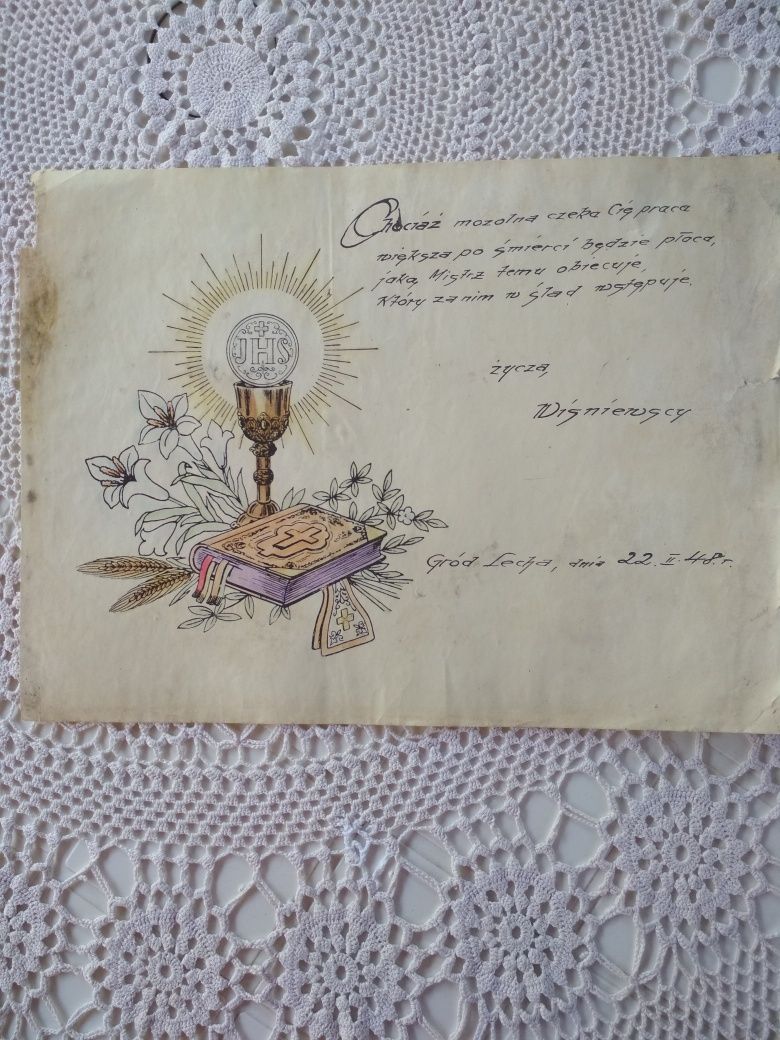 JHS
Chociaż mozolna czeka Cię praca
większa po śmierci będzie płaca,
jaką Mistrz temu obiecuje,
Który za nim w ślad wstępuje.
życzą
Wiśniewscy
Gród Lecha, dnia 22. II. 48. r.